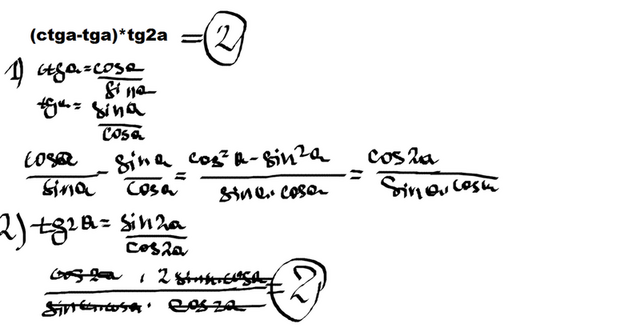 (ctga-tga)*tg2a = 2
1) ctga = cosa/sina
tga = sina/cosa
cosa/sina - sina/cosa = cos²a - sin²a/sina · cosa = cos2a/sina · cosa
2) tg2a = sin2a/cos2a
cos2a · 2 sina · cosa/sina · cosa · cos2a = 2